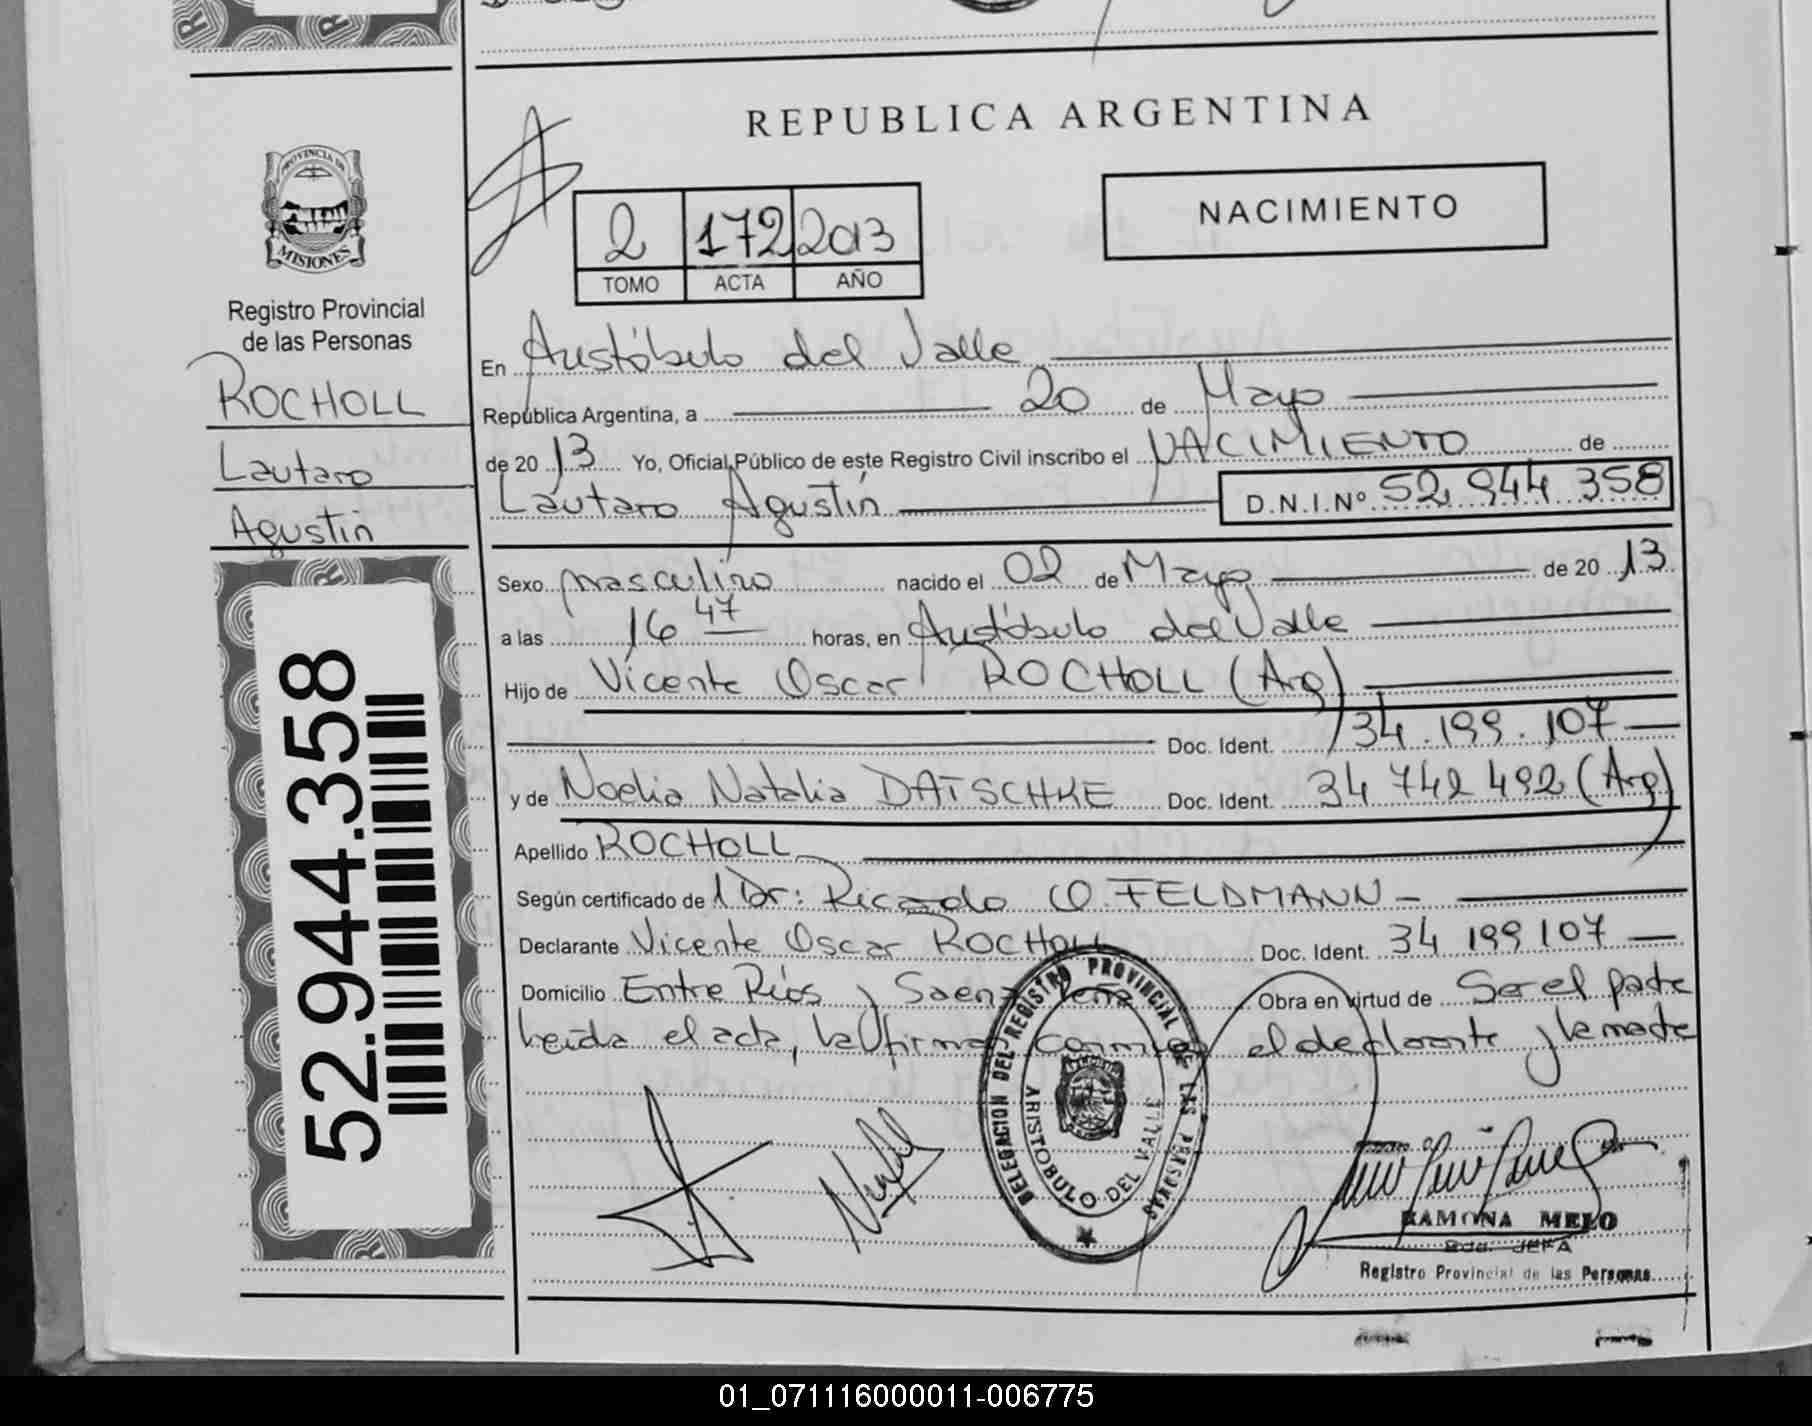 REPUBLICA ARGENTINA
NACIMIENTO
2 172 2013
TOMO ACTA AÑO
PROVINCIA DE
MISIONES
Registro Provincial
de las Personas
ROCHOLL
Lautaro
Agustín
52.944.358
En Aristóbulo del Valle
República Argentina, a 20 de Mayo
de 20 13 Yo, Oficial Público de este Registro Civil inscribo el NACIMIENTO de
Lautaro Agustín D.N.I.Nº 52.944.358
Sexo masculino nacido el 02 de Mayo de 20 13
a las 16 47 horas, en Aristóbulo del Valle
Hijo de Vicente Oscar ROCHOLL (Arg)
Doc. Ident. 34.199.107
y de Noelia Natalia DATSCHKE Doc. Ident. 34 742 492 (Arg)
Apellido ROCHOLL
Según certificado de Dr: Ricardo O. FELDMANN
Declarante Vicente Oscar ROCHOLL Doc. Ident. 34 199 107
Domicilio Entre Ríos y Saenz Peña Obra en virtud de Ser el padre
Leída el acta, la firman conmigo el declarante y la madre
DELEGACION DEL REGISTRO PROVINCIAL DE LAS PERSONAS
ARISTOBULO DEL VALLE
RAMONA MELO
JEFA
Registro Provincial de las Personas
01_071116000011-006775